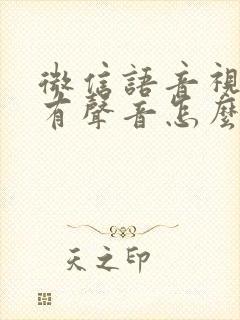 微信語音視
有聲音怎麼
天之印